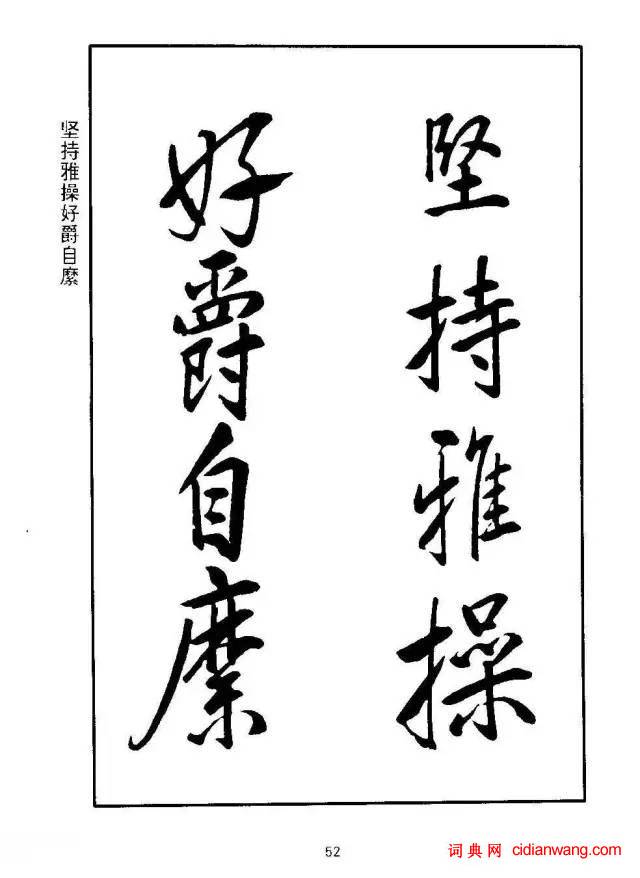 堅持雅操
好爵自縻
坚持雅操好爵自縻
52
词典网 cidianwang.com